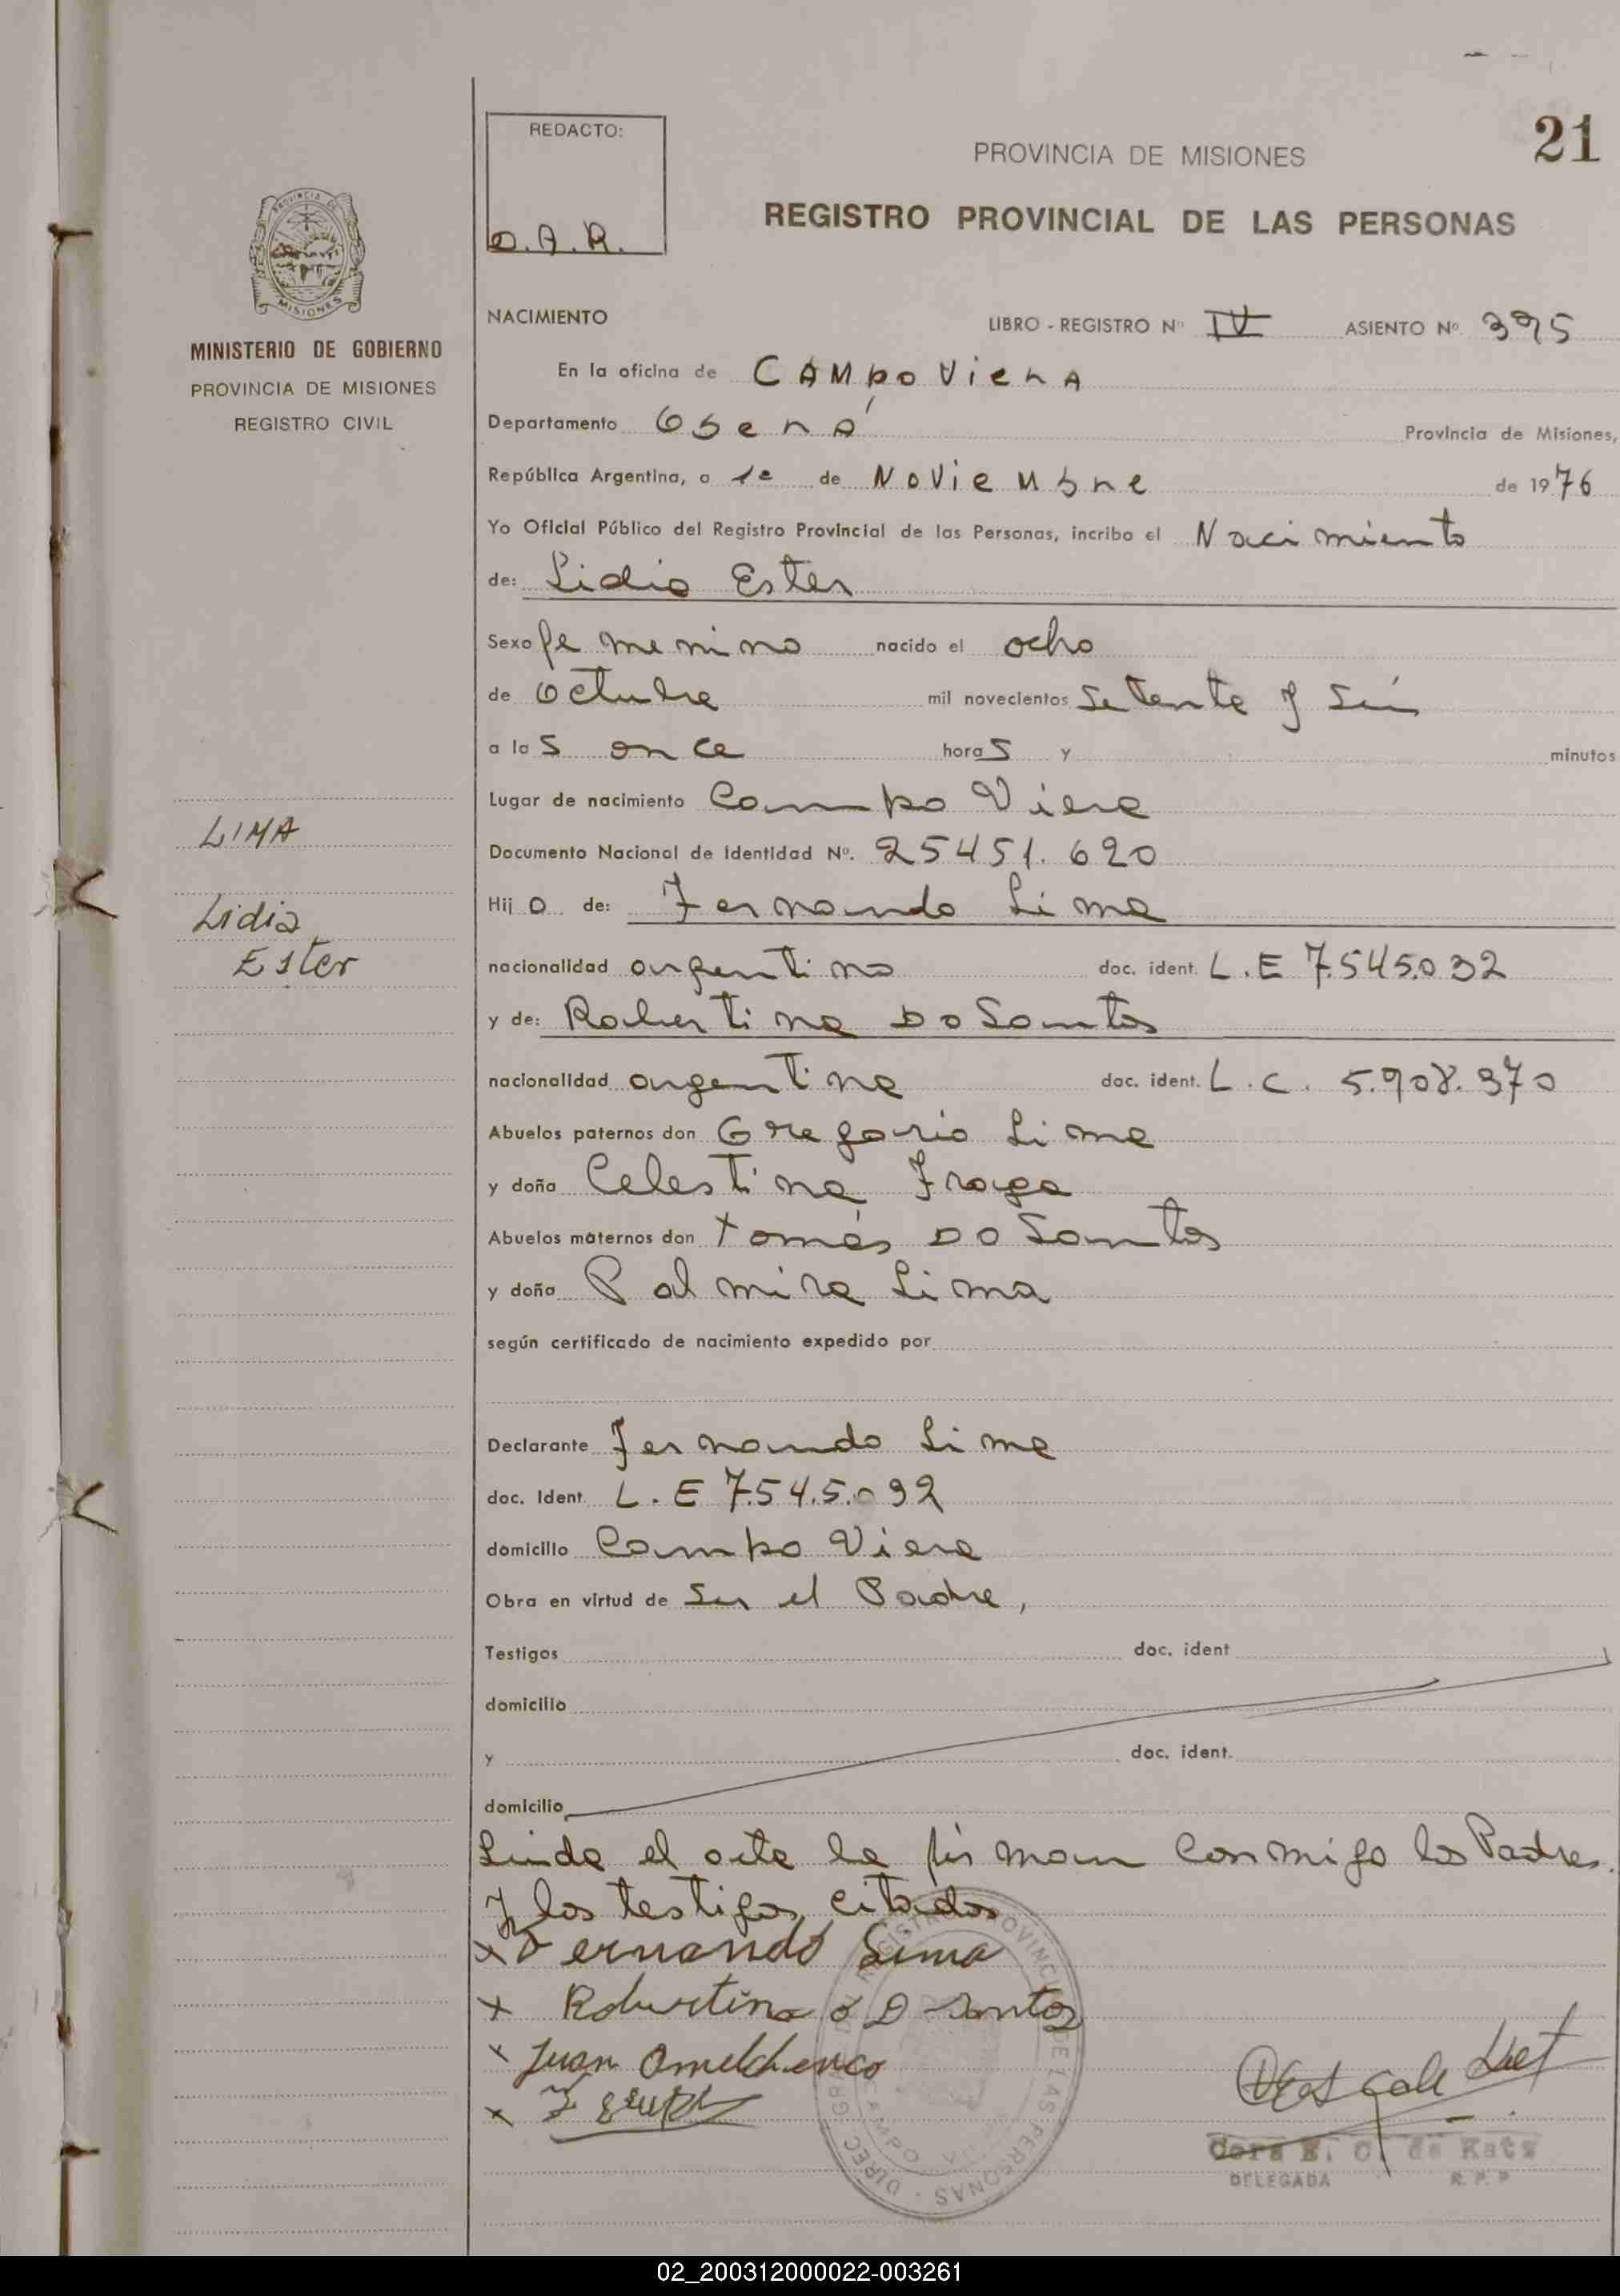 21
REDACTO:
O.A.R.
PROVINCIA DE MISIONES
REGISTRO PROVINCIAL DE LAS PERSONAS
PROVINCIA DE
MISIONES
MINISTERIO DE GOBIERNO
PROVINCIA DE MISIONES
REGISTRO CIVIL
NACIMIENTO LIBRO - REGISTRO Nº IV ASIENTO Nº 395
En la oficina de CAMpo VierA
Departamento Oberá Provincia de Misiones,
República Argentina, a 1º de Noviembre de 1976
Yo Oficial Público del Registro Provincial de las Personas, incribo el Nacimiento
de: Lidia Ester
Sexo femenino nacido el ocho
de octubre mil novecientos setenta y seis
a las once horas y minutos
Lugar de nacimiento Campo Viera
LIMA
Documento Nacional de Identidad Nº. 25451.620
Hijo de: Fernando Lima
Lidia
Ester
nacionalidad argentino doc. ident. L.E 7.545.032
y de: Robertina Do Santos
nacionalidad argentina doc. ident. L.C. 5.908.370
Abuelos paternos don Gregorio Lima
y doña Celestina Fraga
Abuelos maternos don tomás Do Santos
y doña Palmira Lima
según certificado de nacimiento expedido por
Declarante Fernando Lima
doc. Ident. L.E 7.54.5.032
domicilio Campo Viera
Obra en virtud de ser el Padre,
Testigos doc. ident
domicilio
y doc. ident.
domicilio
Leida el acta la firman conmigo los Padres
y los testigos citados
x Fernando Lima
x Robertina D santos
x Juan Omelchenco
x
Cora E. C. de Katz
DELEGADA R. P. P
02_200312000022-003261